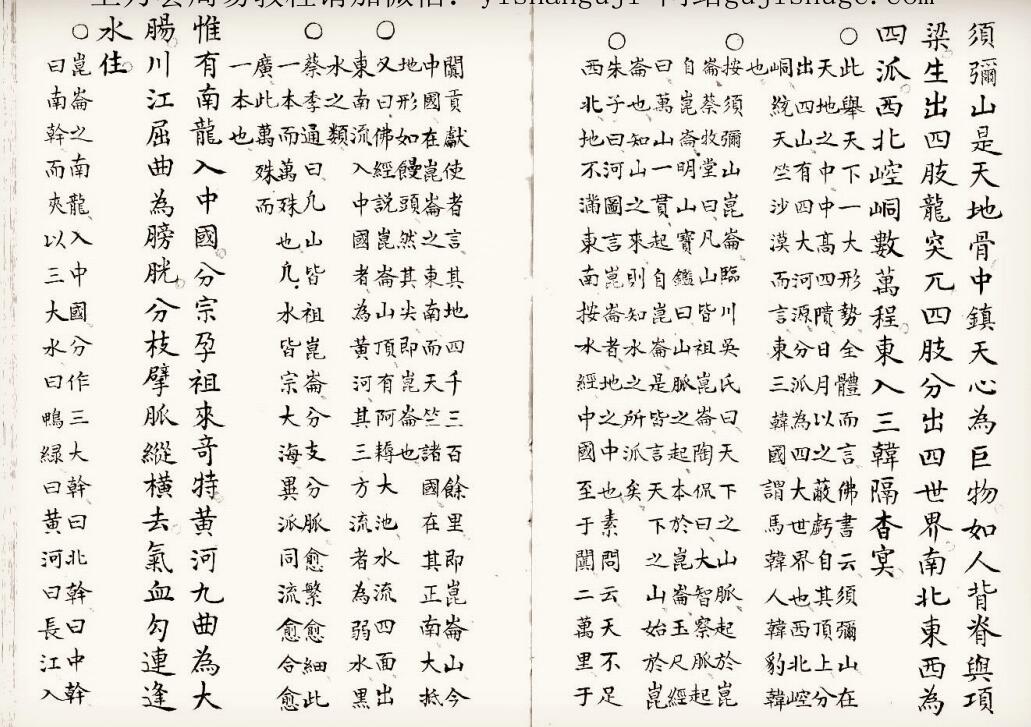 yishanguji 网站gujishuge.com
須彌山是天地骨中鎮天心為巨物如人背脊與項
梁生出四肢龍突兀四肢分出四世界南北東西為
四派西北崆峒數萬程東入三韓隔杳㝠
○此舉天下一大形勢全體而言佛書云須彌山在
天地之中中高四隤日月以之蔽虧自其頂上分
出四山有四大河源分派為四大世界也西北崆
峒統天竺沙漠而言東三韓國謂馬韓人韓豹韓
也
○按須彌山崑崙臨川吳氏曰天下之山脈起於崑
崙蔡牧堂曰凡山皆祖崑崙陶侃曰大智察脈起
自崑崙明山寶鑑曰山脈之起本於崑崙玉尺經
曰萬山一貫起自崑崙是皆言天下之山始於崑
崙也知山之來則知水之所派矣
○朱子曰河圖言崑崙者地之中也素問云天不足
西北地不滿東南按水經中國至于闐二萬里于
闐貢獻使者言其地四千三百餘里即崑崙山今
中國在崑崙之東南而天竺諸國在其正南大抵
地形如饅頭然其尖即崑崙也
○又曰佛經説崑崙山頂有阿耨大池水流四面出
東南流入中國者為黃河其三方流者為弱水黑
水之類
○蔡季通曰凡山皆祖崑崙分支分脈愈繁愈細此
一本而萬殊也凡水皆宗大海異派同流愈合愈
廣此萬殊而
一本也
惟有南龍入中國分宗孕祖來奇特黃河九曲為大
腸川江屈曲為膀胱分枝擘脈縱橫去氣血勾連逢
水住
○崑崙之南龍入中國分作三大幹曰北幹曰中幹
曰南幹而夾以三大水曰鴨綠曰黃河曰長江入